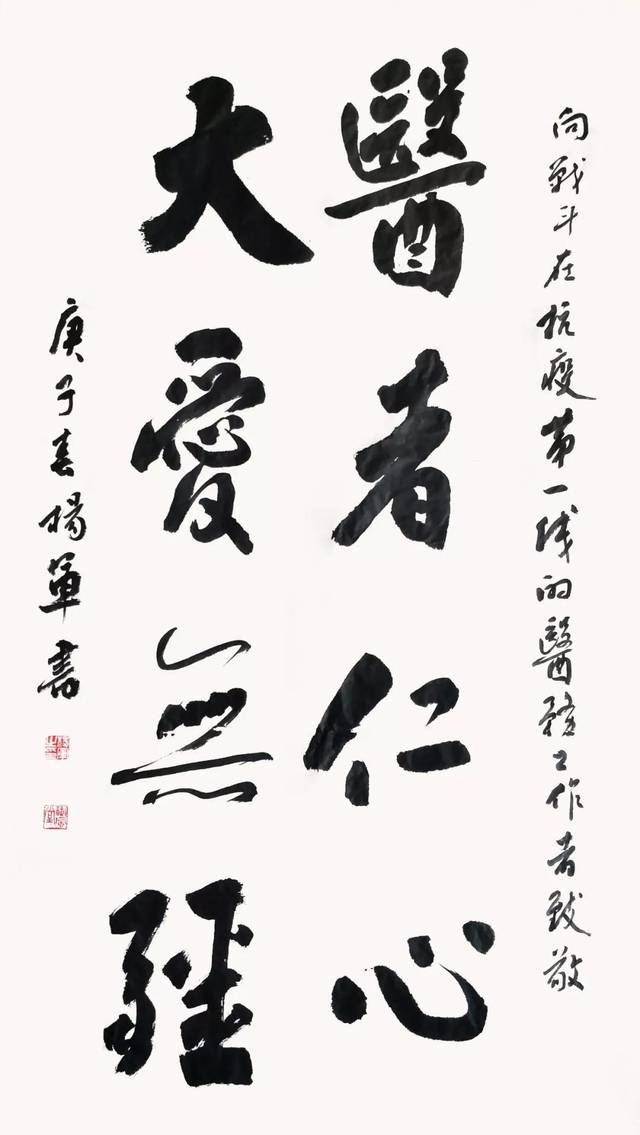 向戰斗在抗疫第一线的醫務工作者致敬
醫者仁心
大愛無疆
庚子春楊軍書